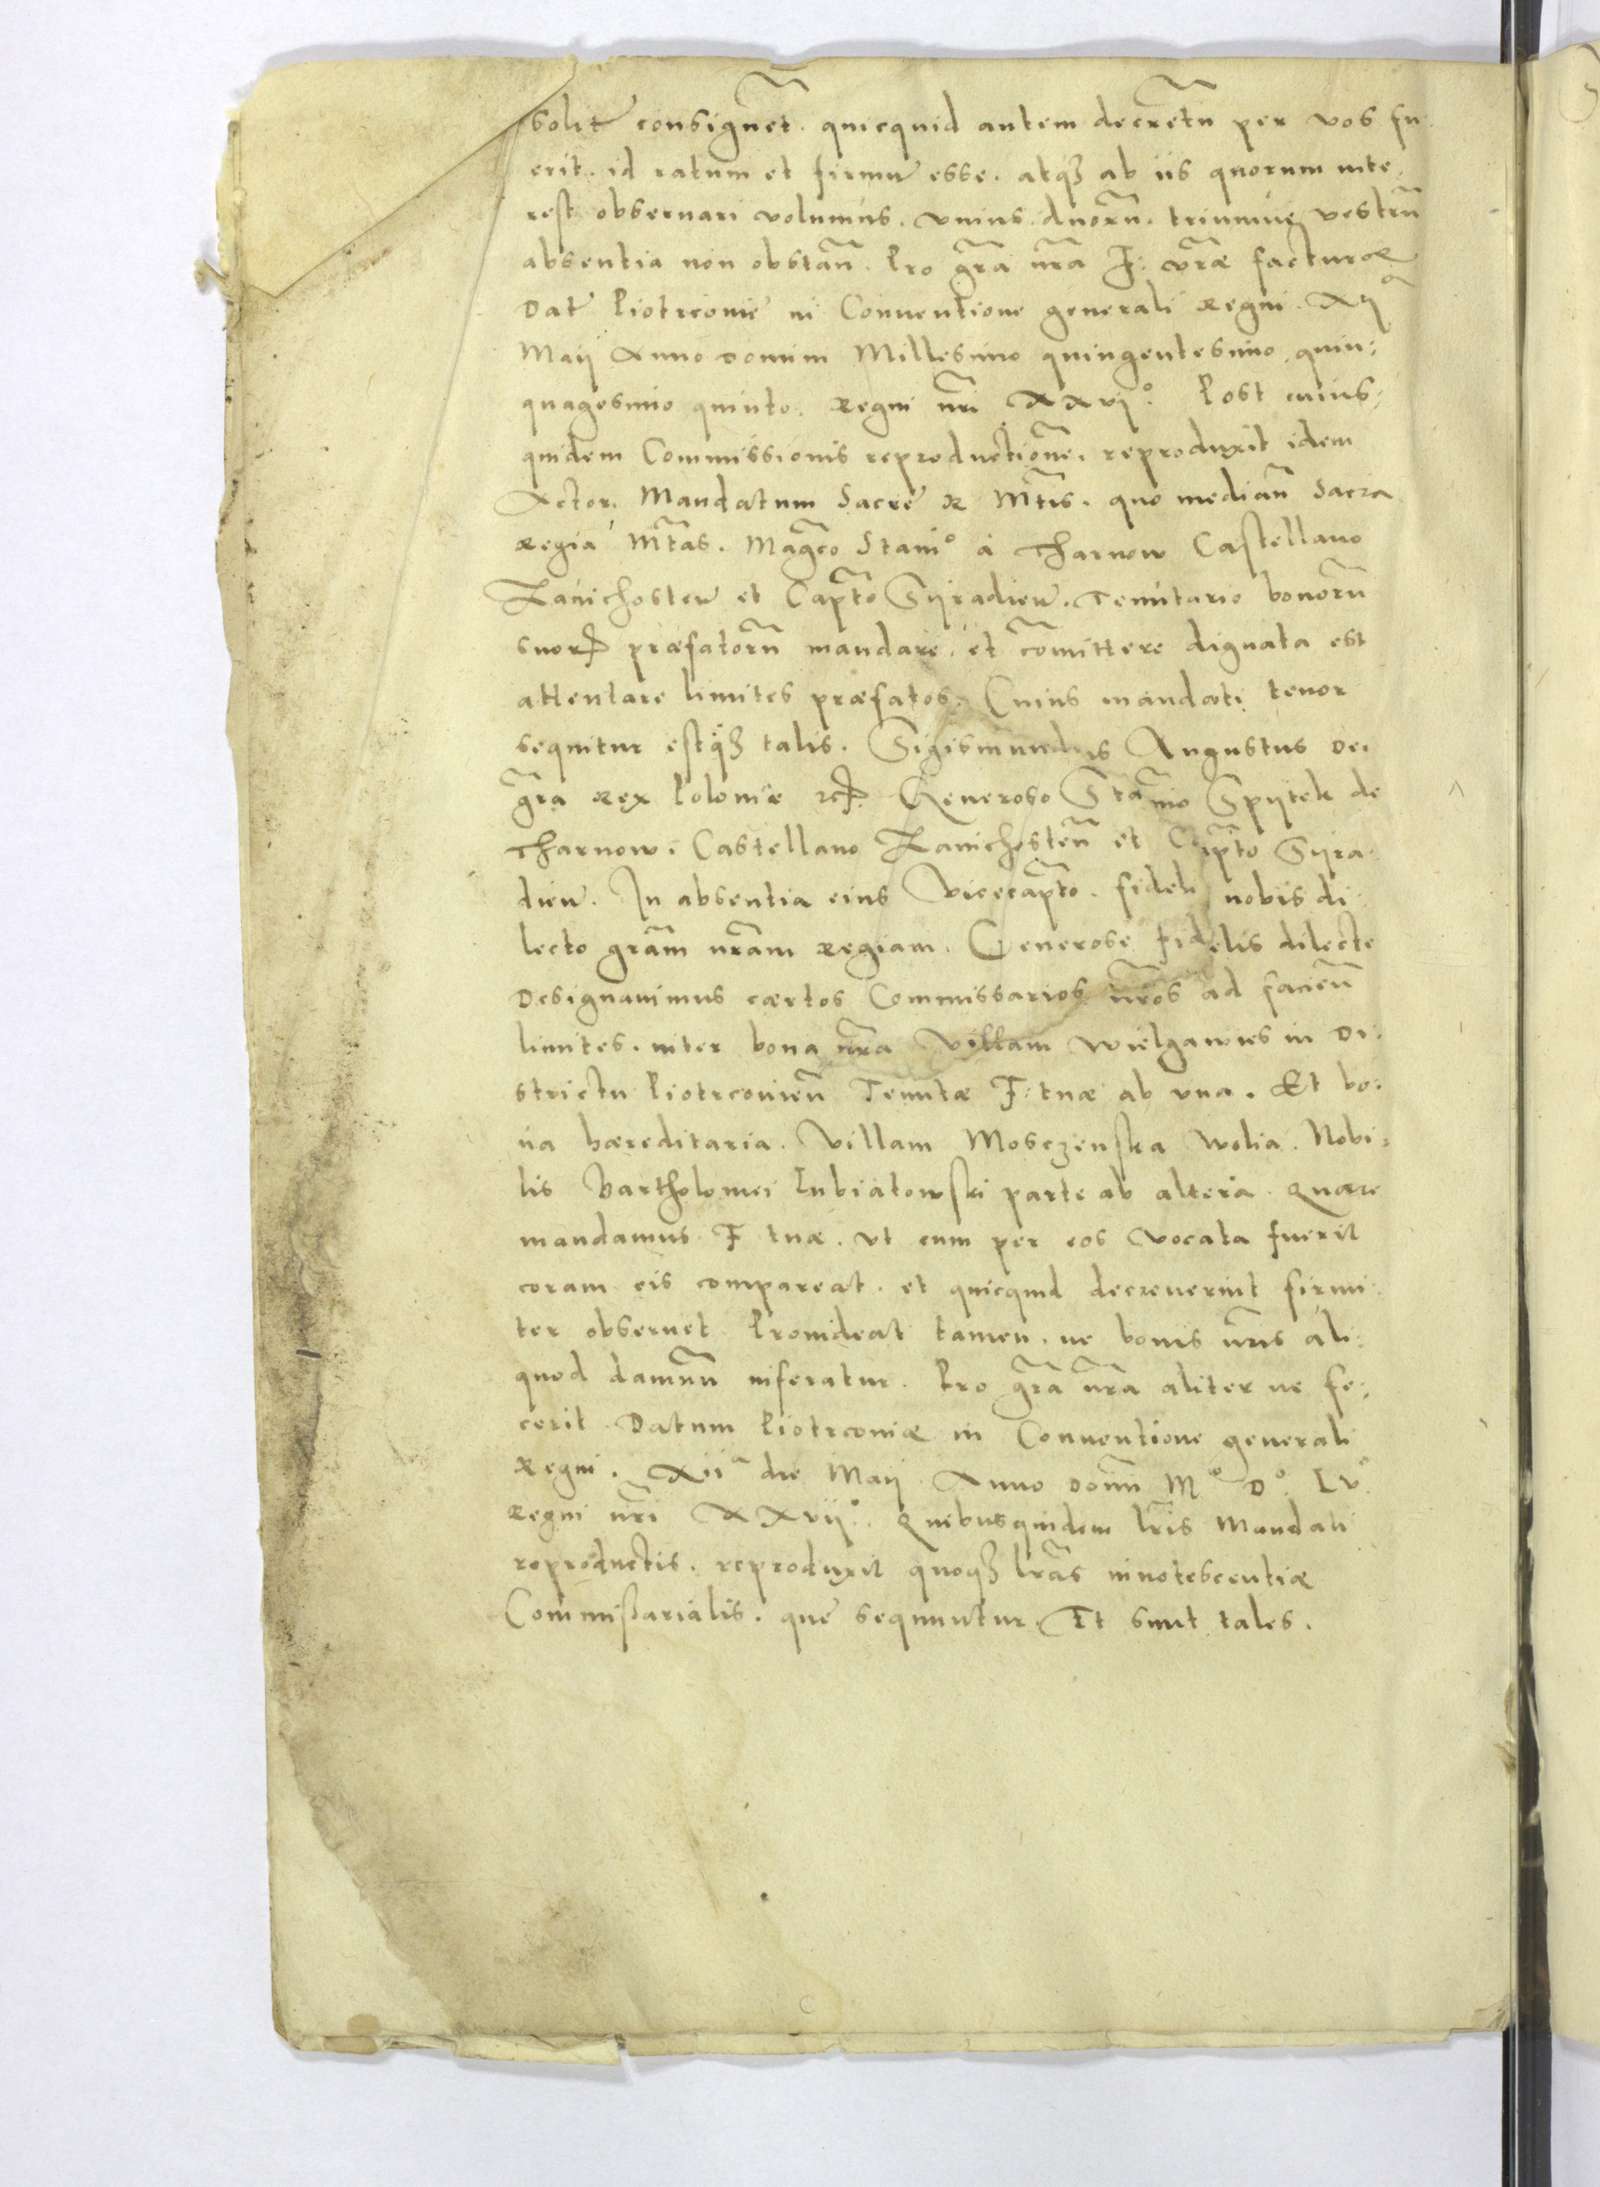 solitę consignēt. quicquid autem decrētu per vos fu
erit. id ratum et firmū esse. atq₃ ab iis quorum inte,
rest observari volumus. vnius duorū. triumue vestrū
absentia non obstān̄. Pro grā nrā F: vrā facturæ
Datę Piotrconię in Conventione generali Regni. Xij
Maij Anno domini Millesimo quingentesimo quin:
quagesimo quinto. Regni nrī XXvij°. Post cuius:
quidem Commissionis reproductionē. reproduxit idem
Actor. Mandatum Sacrę R Mtīs. quo mediān̄ Sacra
Regia Mtās. Magco Stani° à Tharnow Castellano
Zawichosteń et Captō Syradień. Tenutario bonorū
suorꝝ præfatorū mandare, et cōmittere dignata est
attentare limites præfatos. Cuius mandati tenor
sequitur estq₃ talis. Sigismundus Augustus Dei
grā Rex Poloniæ etc. Generoso Stānio Spytek de
Tharnow. Castellano Zawichosteń et Captō Syra
dień. In absentia eius Vicecaptō. fideli nobis di
lecto grām nrām Regiam. Generose fidelis dilecte
Designavimus cærtos Commissarios nrōs ad facień
limites. inter bona nrā Villam Wielgawies in Di.
strictu Piotrconień Tenutæ F: tuæ ab vna. Et bo:
na hæreditaria. Villam Mosczenska Wolia. Nobi=
lis Bartholomei Lubiatowski parte ab altera. Quare
mandamus F tuæ. vt cum per eos vocata fuerit
coram eis compareat. et quicquid decreverint firmi
ter observet Provideat tamen. ne bonis nrīs ali:
quod damnū inferatur. Pro grā nrā aliter ne fe:
cerit. Datum Piotrconiæ in Conventione generali
Regni. Xii a die Maij Anno Domī M° D° Lv°
Regni nrī XXvij°. Quibusquidem lrīs Mandati
reproductis. reproduxit quoq₃ lrās innotescentiæ
Commissarialis. quę sequuntur Et sunt tales.